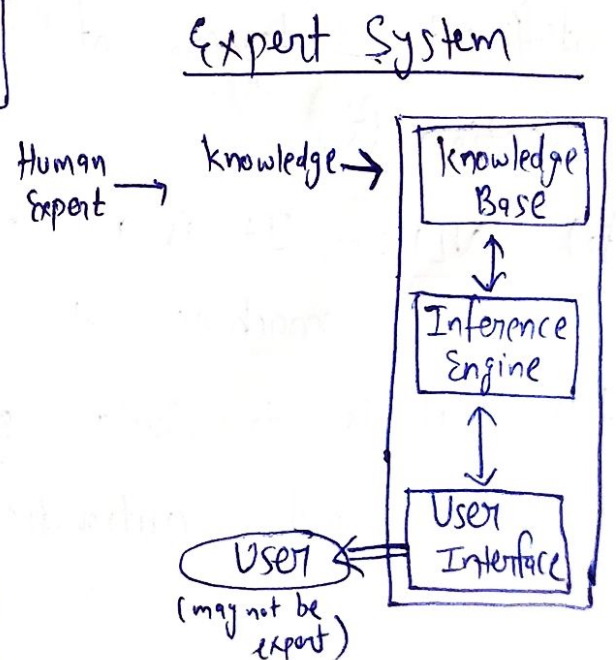 Expert System
Human
Expert
Knowledge
Knowledge
Base
Inference
Engine
User
Interface
User
(may not be
expert)